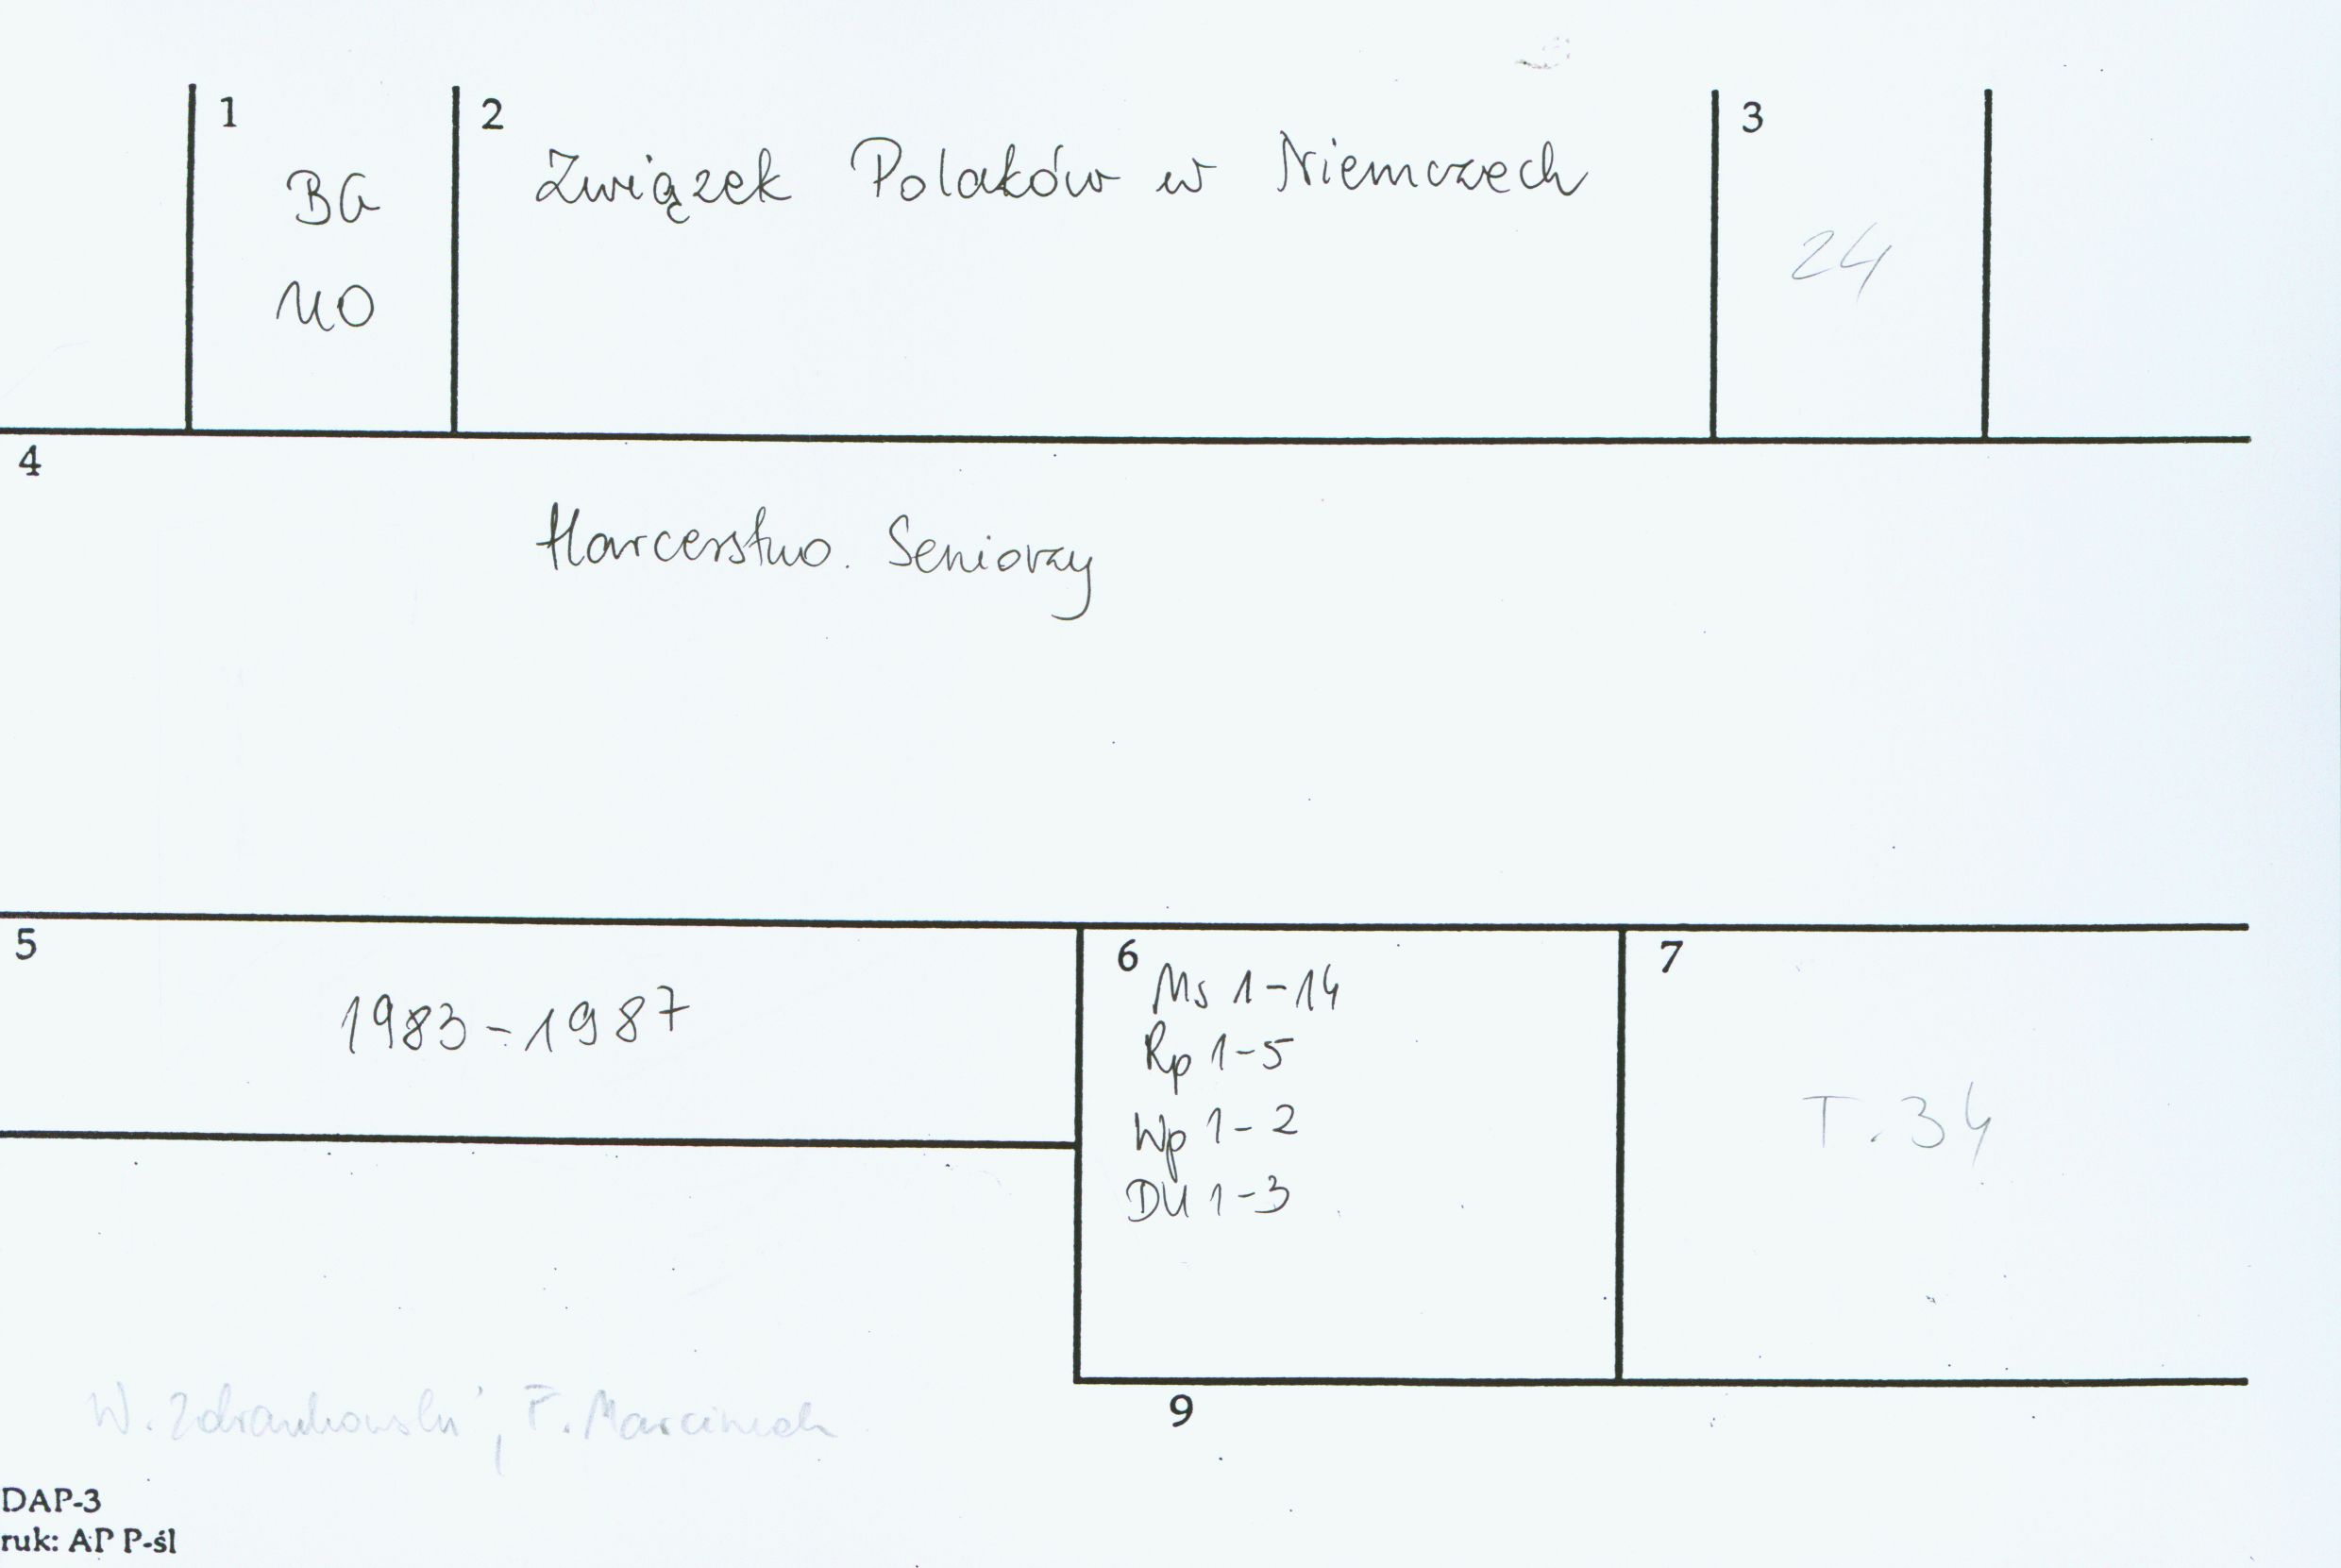 1
BG
UO
2
Związek Polaków w Niemczech
3
24
4
Harcerstwo. Seniorzy
5
1983-1987
6
Ms 1-14
Rp 1-5
Wp 1-2
DU 1-3
7
T. 34
W. , F. Marciniak
9
DAP-3
ruk: AP P-śl